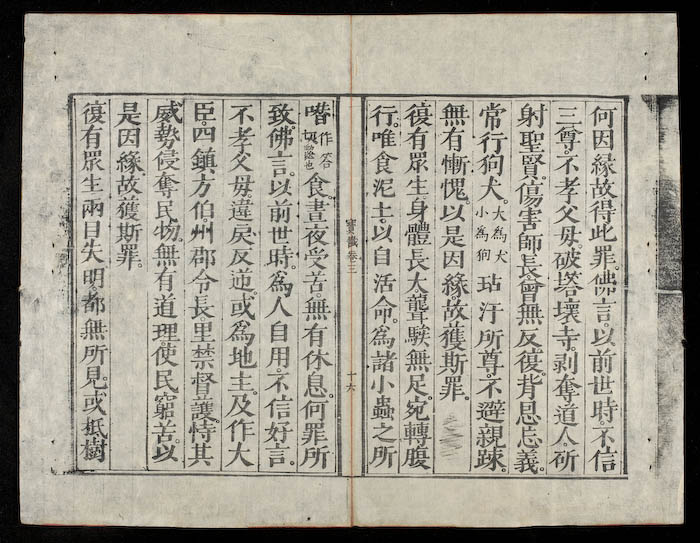 何因緣故得此罪。佛言。以前世時。不信
三尊。不孝父母。破塔壞寺。剥奪道人。斫
射聖賢。傷害師長。曾無反復。背恩忘義。
常行狗犬。大為犬小為狗玷汙所尊。不避親踈。
無有慚愧。以是因緣。故獲斯罪。
復有眾生。身體長大。聾騃無足。宛轉腹
行。唯食泥土。以自活命。為諸小蟲之所
寶懺卷三
十六
唼食。晝夜受苦。無有休息。何罪所
致。佛言。以前世時。為人自用。不信好言。
不孝父母。違戾反逆。或為地主。及作大
臣。四鎮方伯。州郡令長。里禁督護。恃其
威勢。侵奪民物。無有道理。使民窮苦。以
是因緣。故獲斯罪。
復有眾生。兩目失明。都無所見。或抵樹